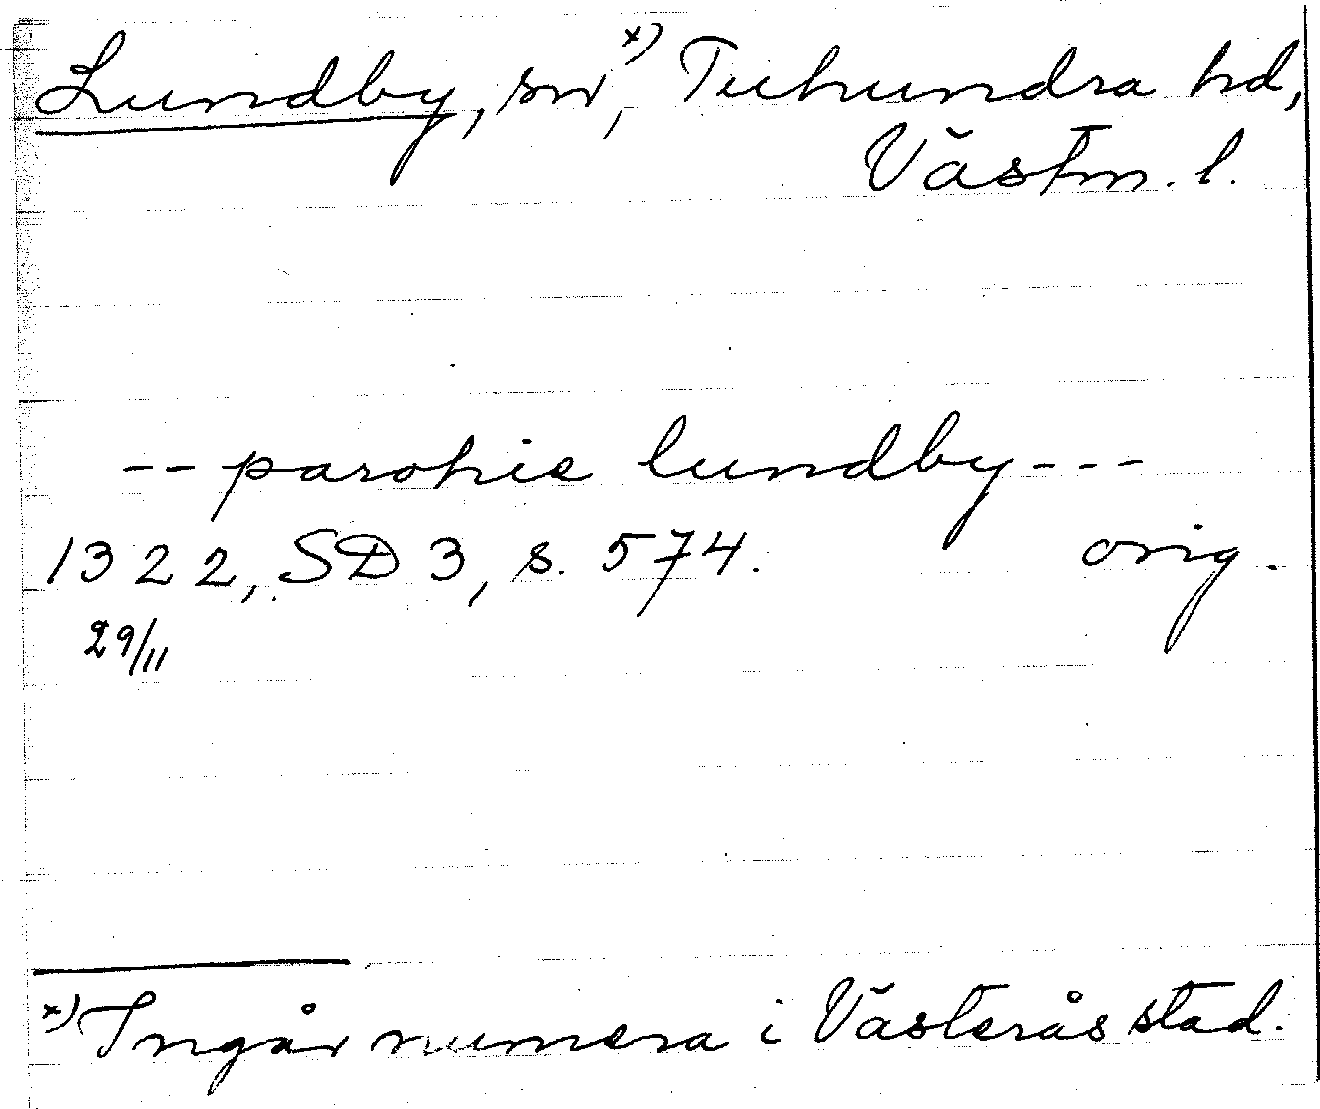 Lundby, sn,x) Tuhundra hd,
Västm. l.
-- parohie lundby ---
1322, SD 3, s. 574. orig.
29/11
x) Ingår numera i Västerås stad.